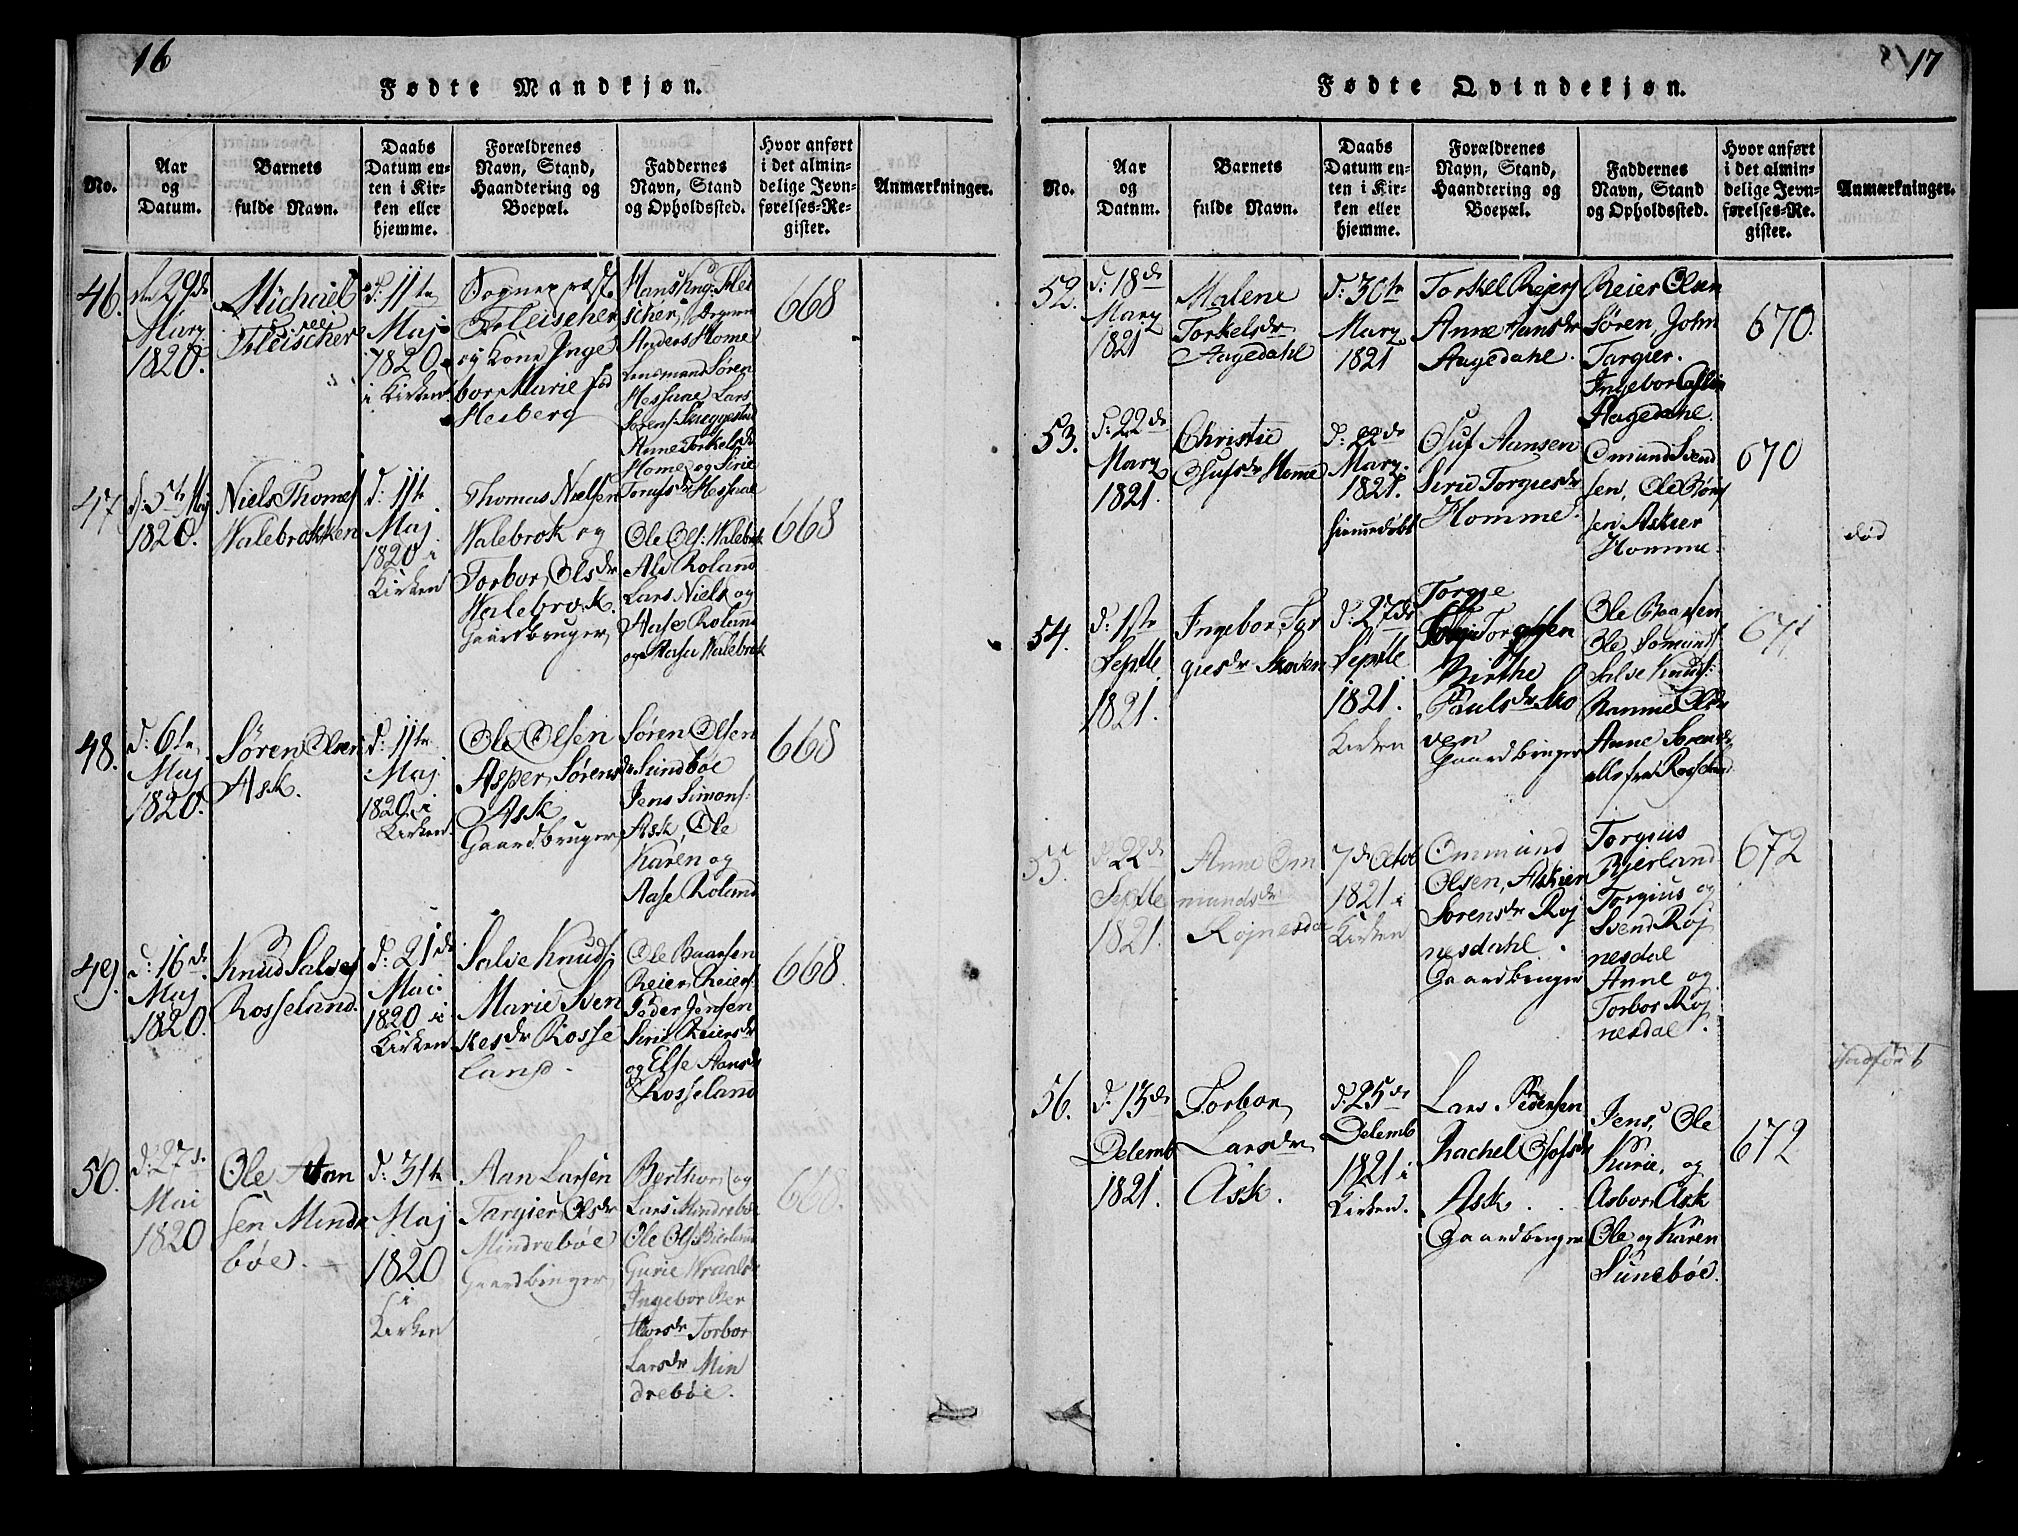 16
Fødte Mandkjøn.
No.
Aar
og
Datum.
Barnets
fulde Navn.
Daabs
Datum en-
ten i Kir-
ken eller
hjemme.
Forældrenes
Navn, Stand,
Haandtering og
Boepæl.
Faddernes
Navn, Stand
og Opholdssted.
Hvor anført
i det almin-
delige Jevn-
førelses-Re-
gister.
Anmærkninger.
46.
29de
Marz
1820.
Michael
Fleischer
d: 11te
Maj
1820.
i Kirken
Sognepræst
Fleischer
og Kone Inge
bor Marie fød
Hesberg
Hans Ing: Flei
scher,
Anders Home
Lensmand Søren
Hessune Lars
Sørens: Skeggestad
Anne Torkelsdr
Home og Sirie
Torufsdr Hessune
668
47
d: 5te Maj
1820.
Niels Thomes
Walebrokken
d: 11te
Maj
1820 i
Kirken
Thomas Nielsen
Walebrok og
Torbor Olsdr
Walebrok.
Gaardbruger
Ole Ols: Walebrok
Ale Roland
Lars Niels og
Aase Roland
og Aasa Walebrok
668
48.
d: 6te
Maj
1820.
Søren Olsen
Ask.
d: 11te
Maj
1820 i
Kirken.
Ole Olsen
Asper Sørensdr
Ask
Gaardbruger
Søren Olsen
Sundbøe
Jens Simons:
Ask, Ole
Karen og
Aase Roland
668
49.
d: 16de
Maj
1820.
Knud Salves
Rosseland.
d: 21de
Mai
1820 i
Kirken
Salve Knuds:
Marie Sven
kesdr Rosse
land.
Ole Baarsen
Reier Reiers:
Peder Jensen
Siri Reiersdr
og Else Aansdr
Rosseland
668.
50.
d: 27de
Mai
1820
Ole Aan
sen Mindr
bøe.
d: 31te
Maj
1820
i
Kirken
Aan Larsen
Targier Olsdr
Mindrebøe
Gaardbruger
Berthor og
Lars Mindrebø
Ole Ols: Bierland
Gurie Wraals
Ingebor Ber
thorsdr Torbor
Larsdr Min
drebøe.
668.
17
Fødte Qvindekjøn.
No.
Aar
og
Datum.
Barnets
fulde Navn.
Daabs
Datum en-
ten i Kir-
ken eller
hjemme.
Forældrenes
Navn, Stand,
Haandtering og
Boepæl.
Faddernes
Navn, Stand
og Opholdssted.
Hvor anført
i det almin-
delige Jevn-
førelses-Re-
gister.
Anmærkninger.
52.
d: 18de
Marz
1821
Malene
Torkelsdr
Aagedahl
d: 30te
Marz
1821
Torkel Reiers
Anne Aansdr
Aagedahl.
Reier Olsen
Søren John
Targier.
Ingebor
Aagedahl.
670.
53.
d: 22de
Marz
1821.
Christie
Olufsdr Homme
d: 22de
Marz
1821.
hiemmedøbt
Oluf Aansen
Sirie Torgiesdr
Homme.
Omund Svend
sen, Ole Bøns
sen Askier
Homme.
670
død
54.
d: 1ste
Septbe
1821.
Ingebor Tor
giesdr Skoven
d: 27de
Septbe
1821.
Kirken
Torgie
Torgiesen
Birthe
Paulsdr Sko
ven
Gaardbruger
Ole Baarsen
Ole Somunds
Salve Knuds:
Ramme Olsdr
Anne Sorensdr
alle fra Rosseland
671
55.
d 22de
Septbe
1821.
Anne Om
mundsdr
Røjnesdal
7de Octob
1821 i
Kirken
Ommund
Olsen, Askier
Sorensdr Røj
nesdahl.
Gaardbruger
Torgius
Bjerland
Torgius og
Svend Røj
nesdal
Anne og
Torbor Røj
nesdal.
672
56.
d. 13de
Decemb
1821.
Torbor
Larsdr
Ask.
d. 25de
Decemb
1821 i
Kirken.
Lars Pedersen
Rachel Olofsdr
Ask.
Gaardbruger
Jens, Ole
Karie, og
Asbor Ask
Ole og Karen
Sunebøe.
672
indført